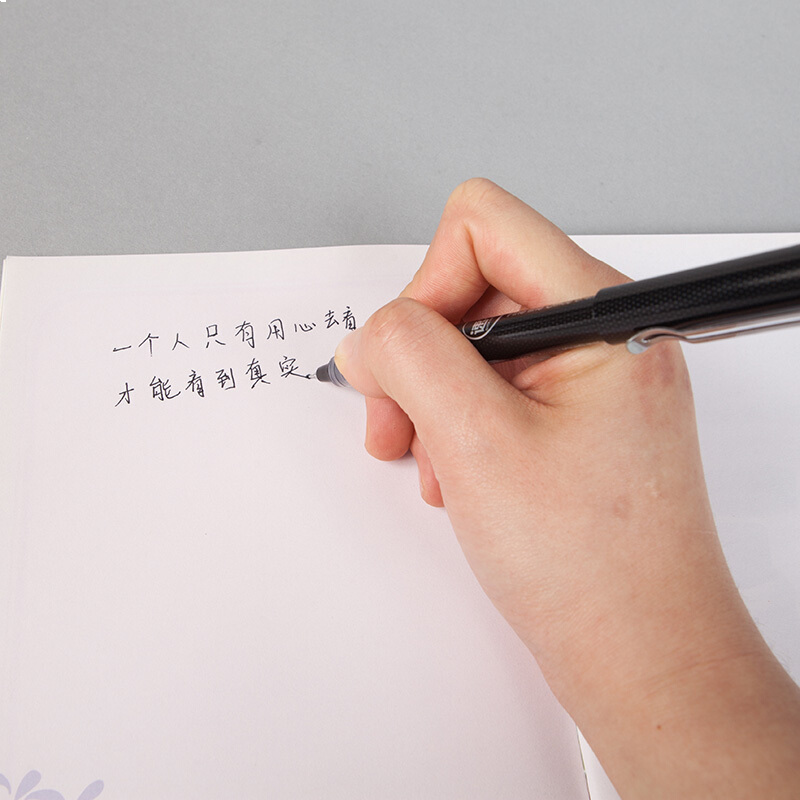 一个人只有用心去看
才能看到真实